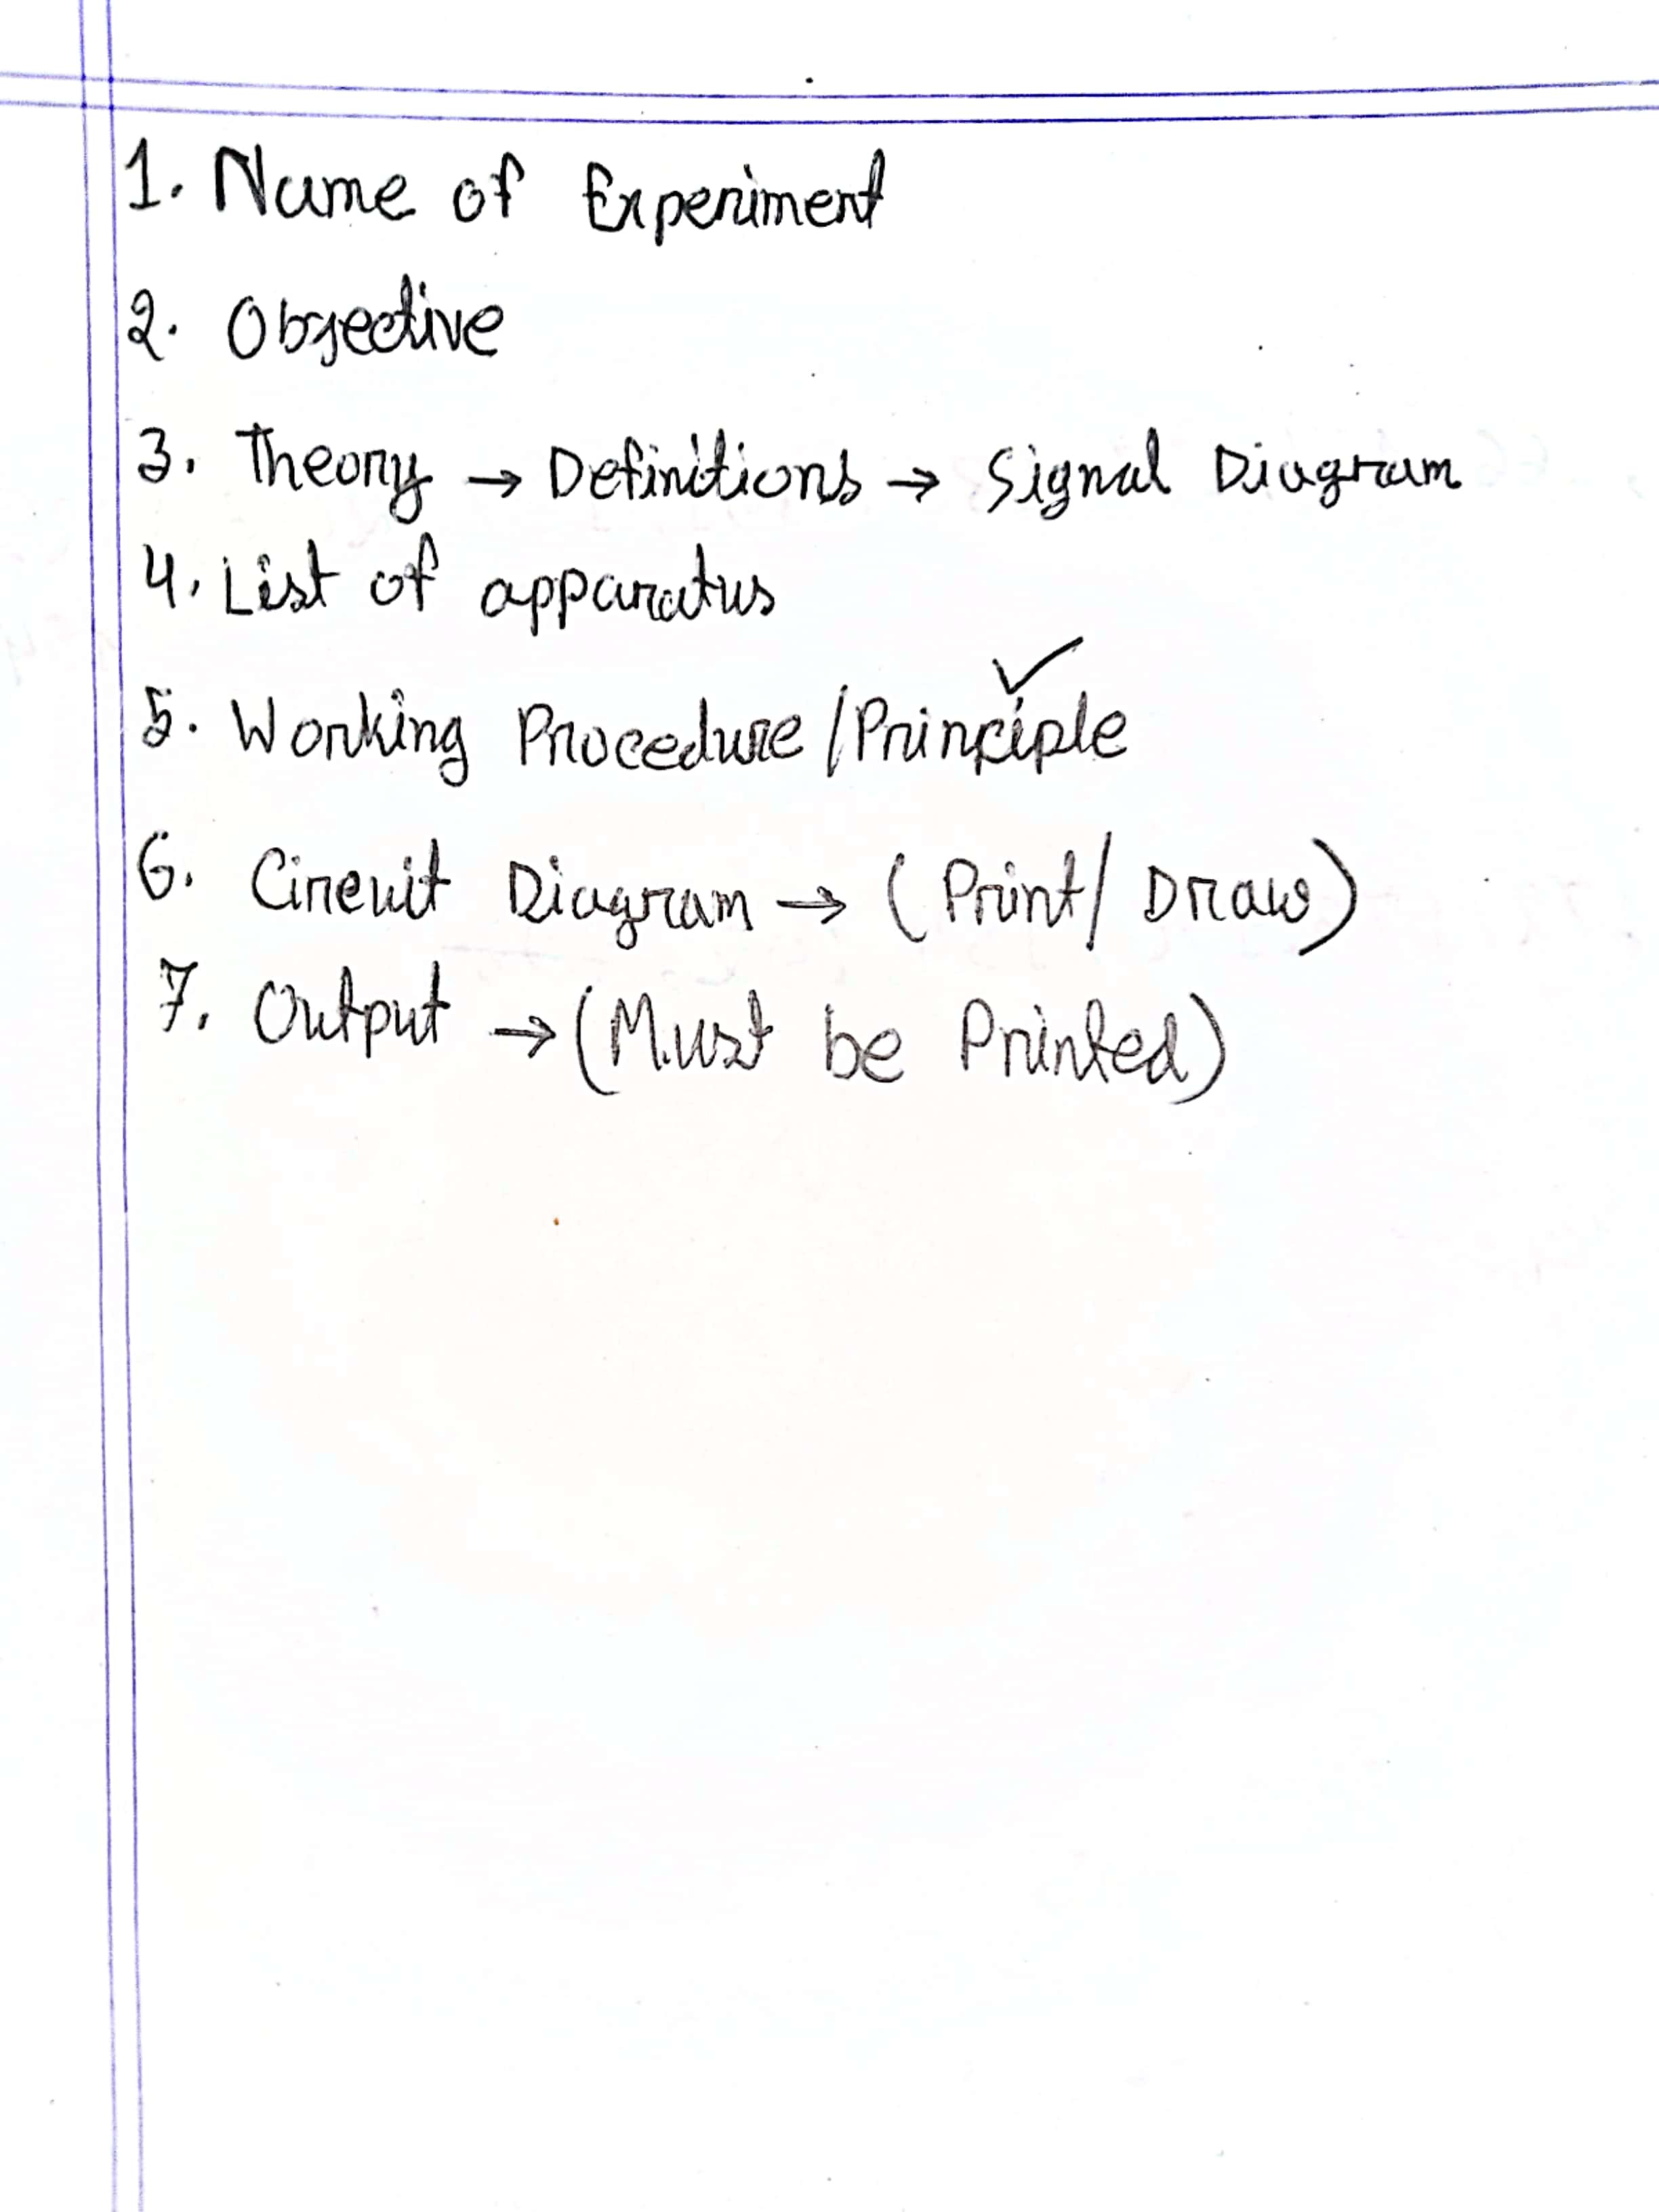 1. Name of Experiment
2. Objective
3. Theory → Definitions → Signal Diagram
4. List of apparatus
5. Working Procedure / Principle ✓
6. Circuit Diagram → (Print / Draw)
7. Output → (Must be Printed)